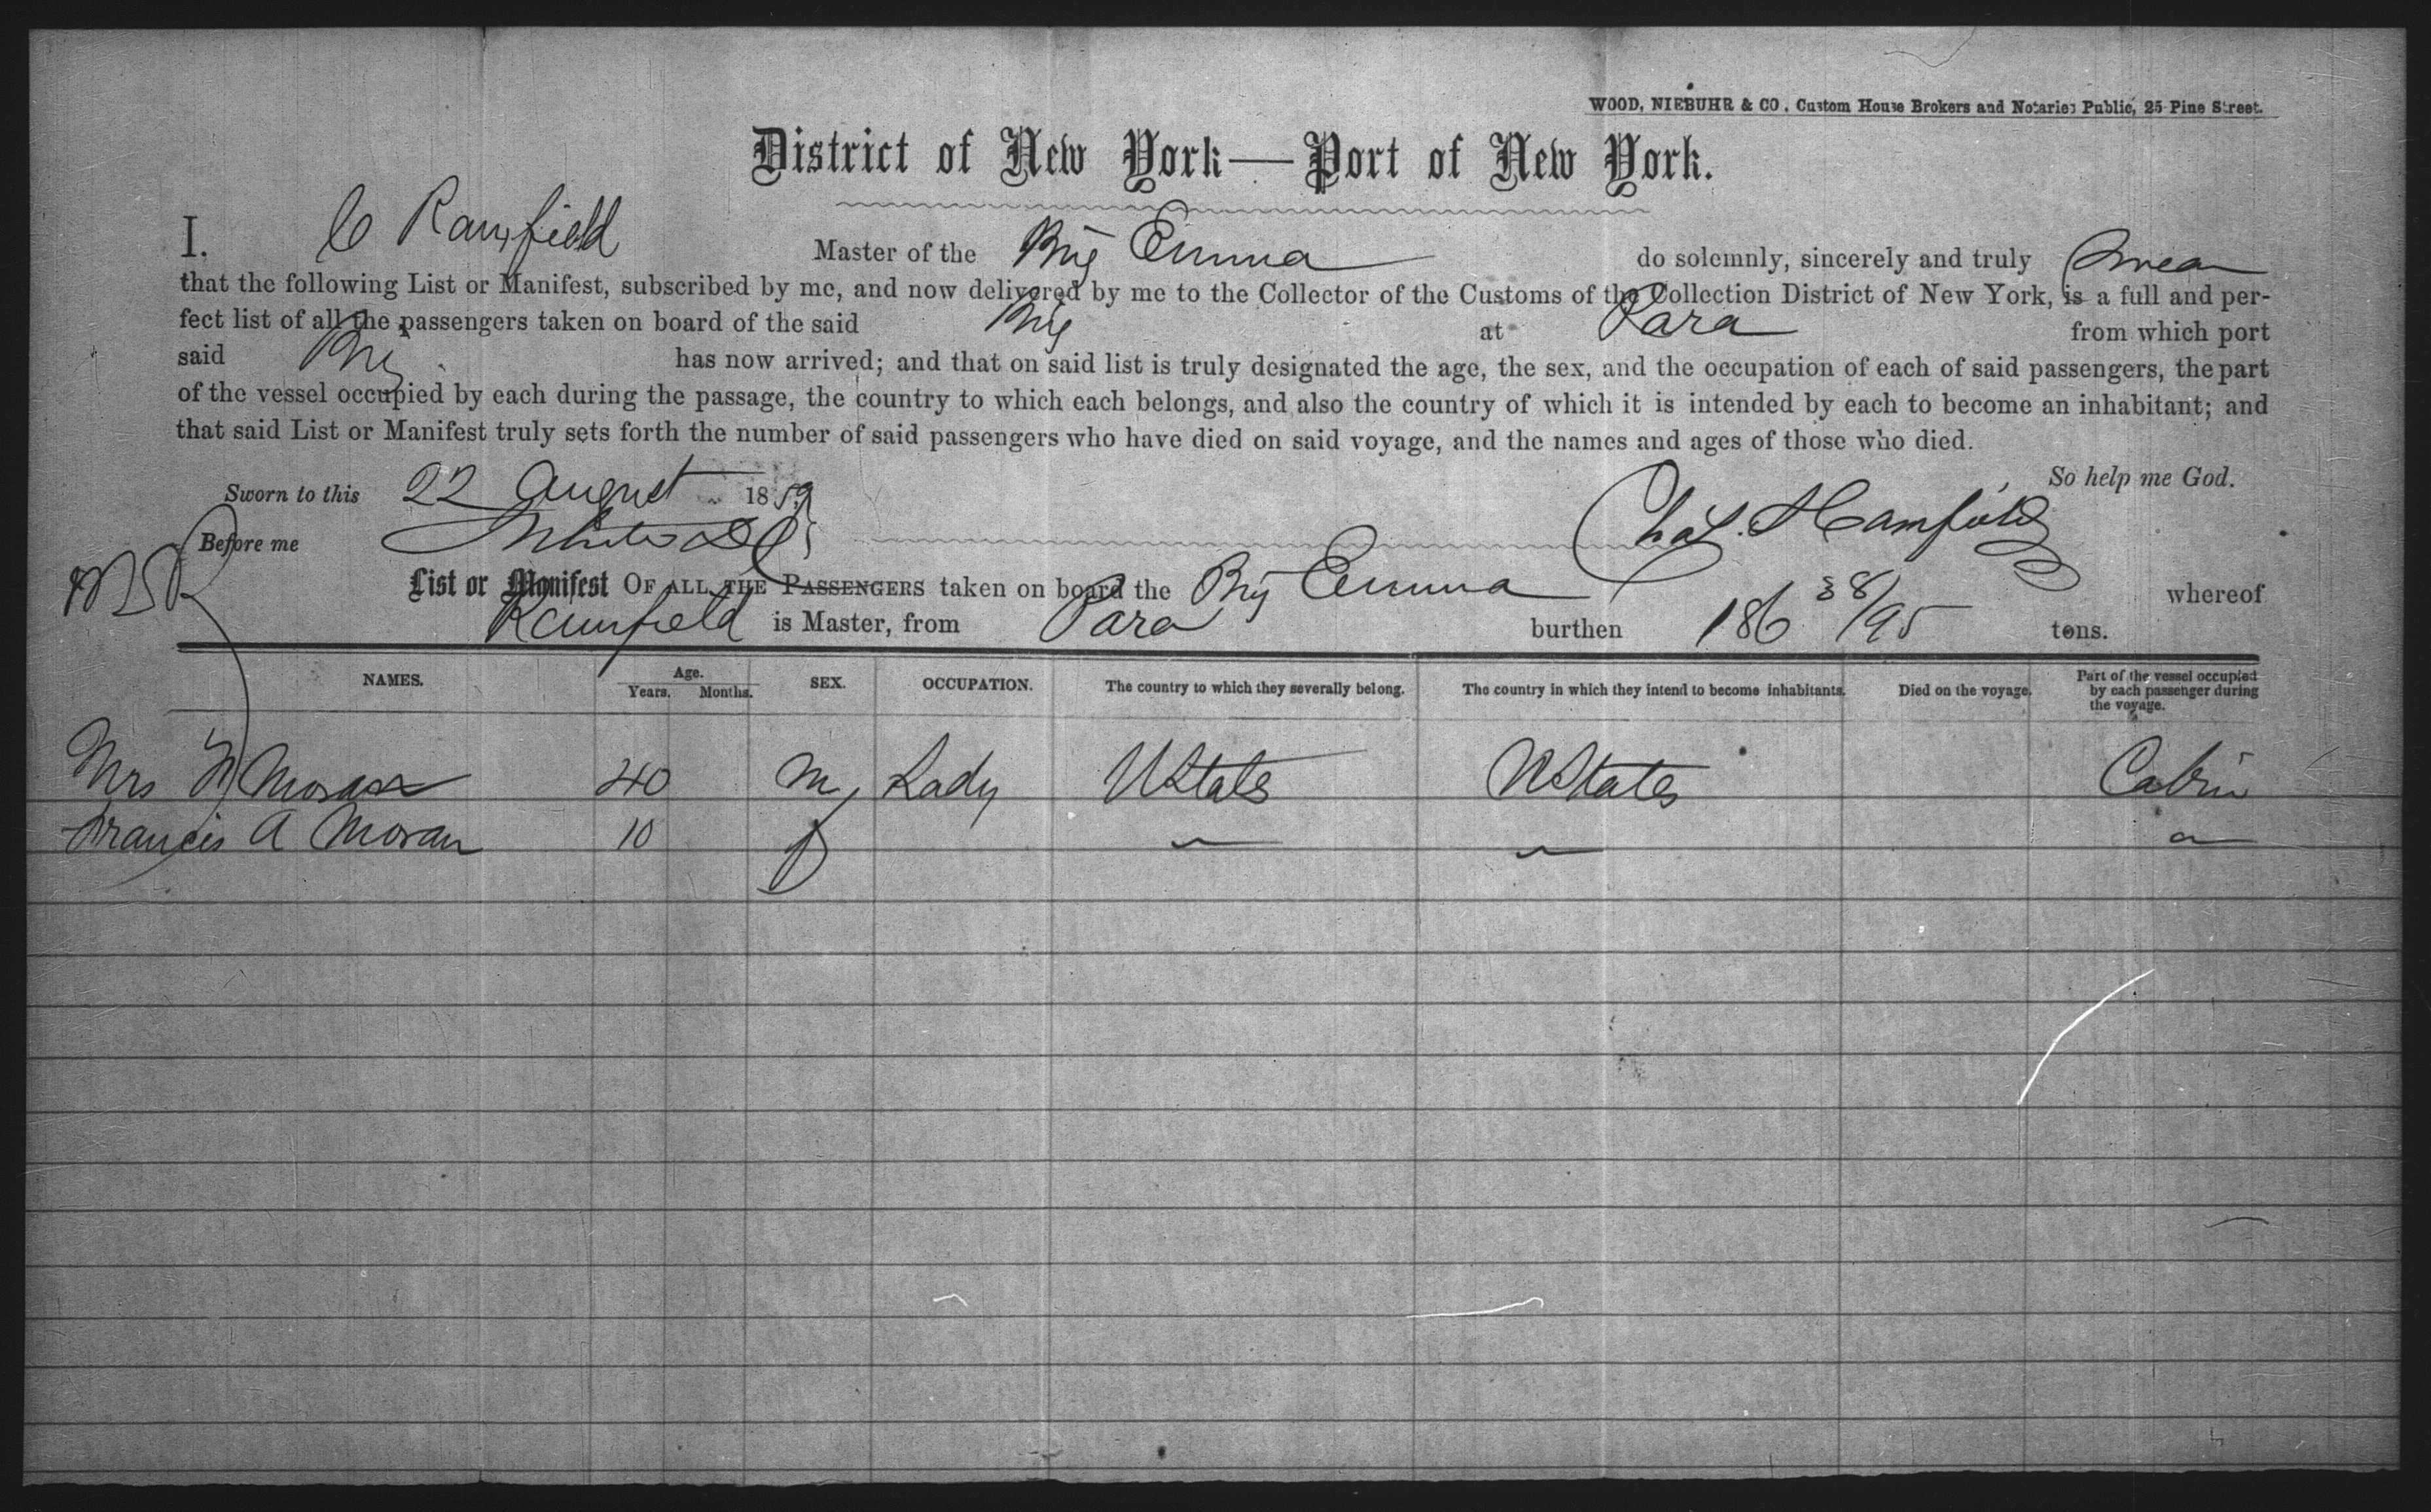 WOOD, NIEBUHR & CO. Custom House Brokers and Notaries Public, 25 Pine Street.
District of New York—Port of New York.
I. C Ramfield Master of the Brig Emma do solemnly, sincerely and truly Swear
that the following List or Manifest, subscribed by me, and now delivered by me to the Collector of the Customs of the Collection District of New York, is a full and per-
fect list of all the passengers taken on board of the said Brig at Para from which port
said Brig has now arrived; and that on said list is truly designated the age, the sex, and the occupation of each of said passengers, the part
of the vessel occupied by each during the passage, the country to which each belongs, and also the country of which it is intended by each to become an inhabitant; and
that said List or Manifest truly sets forth the number of said passengers who have died on said voyage, and the names and ages of those who died.
So help me God.
Sworn to this 22 August 1859
Before me
Chas.
List or Manifest OF ALL THE PASSENGERS taken on board the Brig Emma whereof
Ramfield is Master, from Para burthen 186 38/95 tons.
NAMES. Age. Years. Months. SEX. OCCUPATION. The country to which they severally belong. The country in which they intend to become inhabitants. Died on the voyage. Part of the vessel occupied by each passenger during the voyage.
Mrs Moran 40 m Lady UStates UStates Cabin
Francis A Moran 10 f